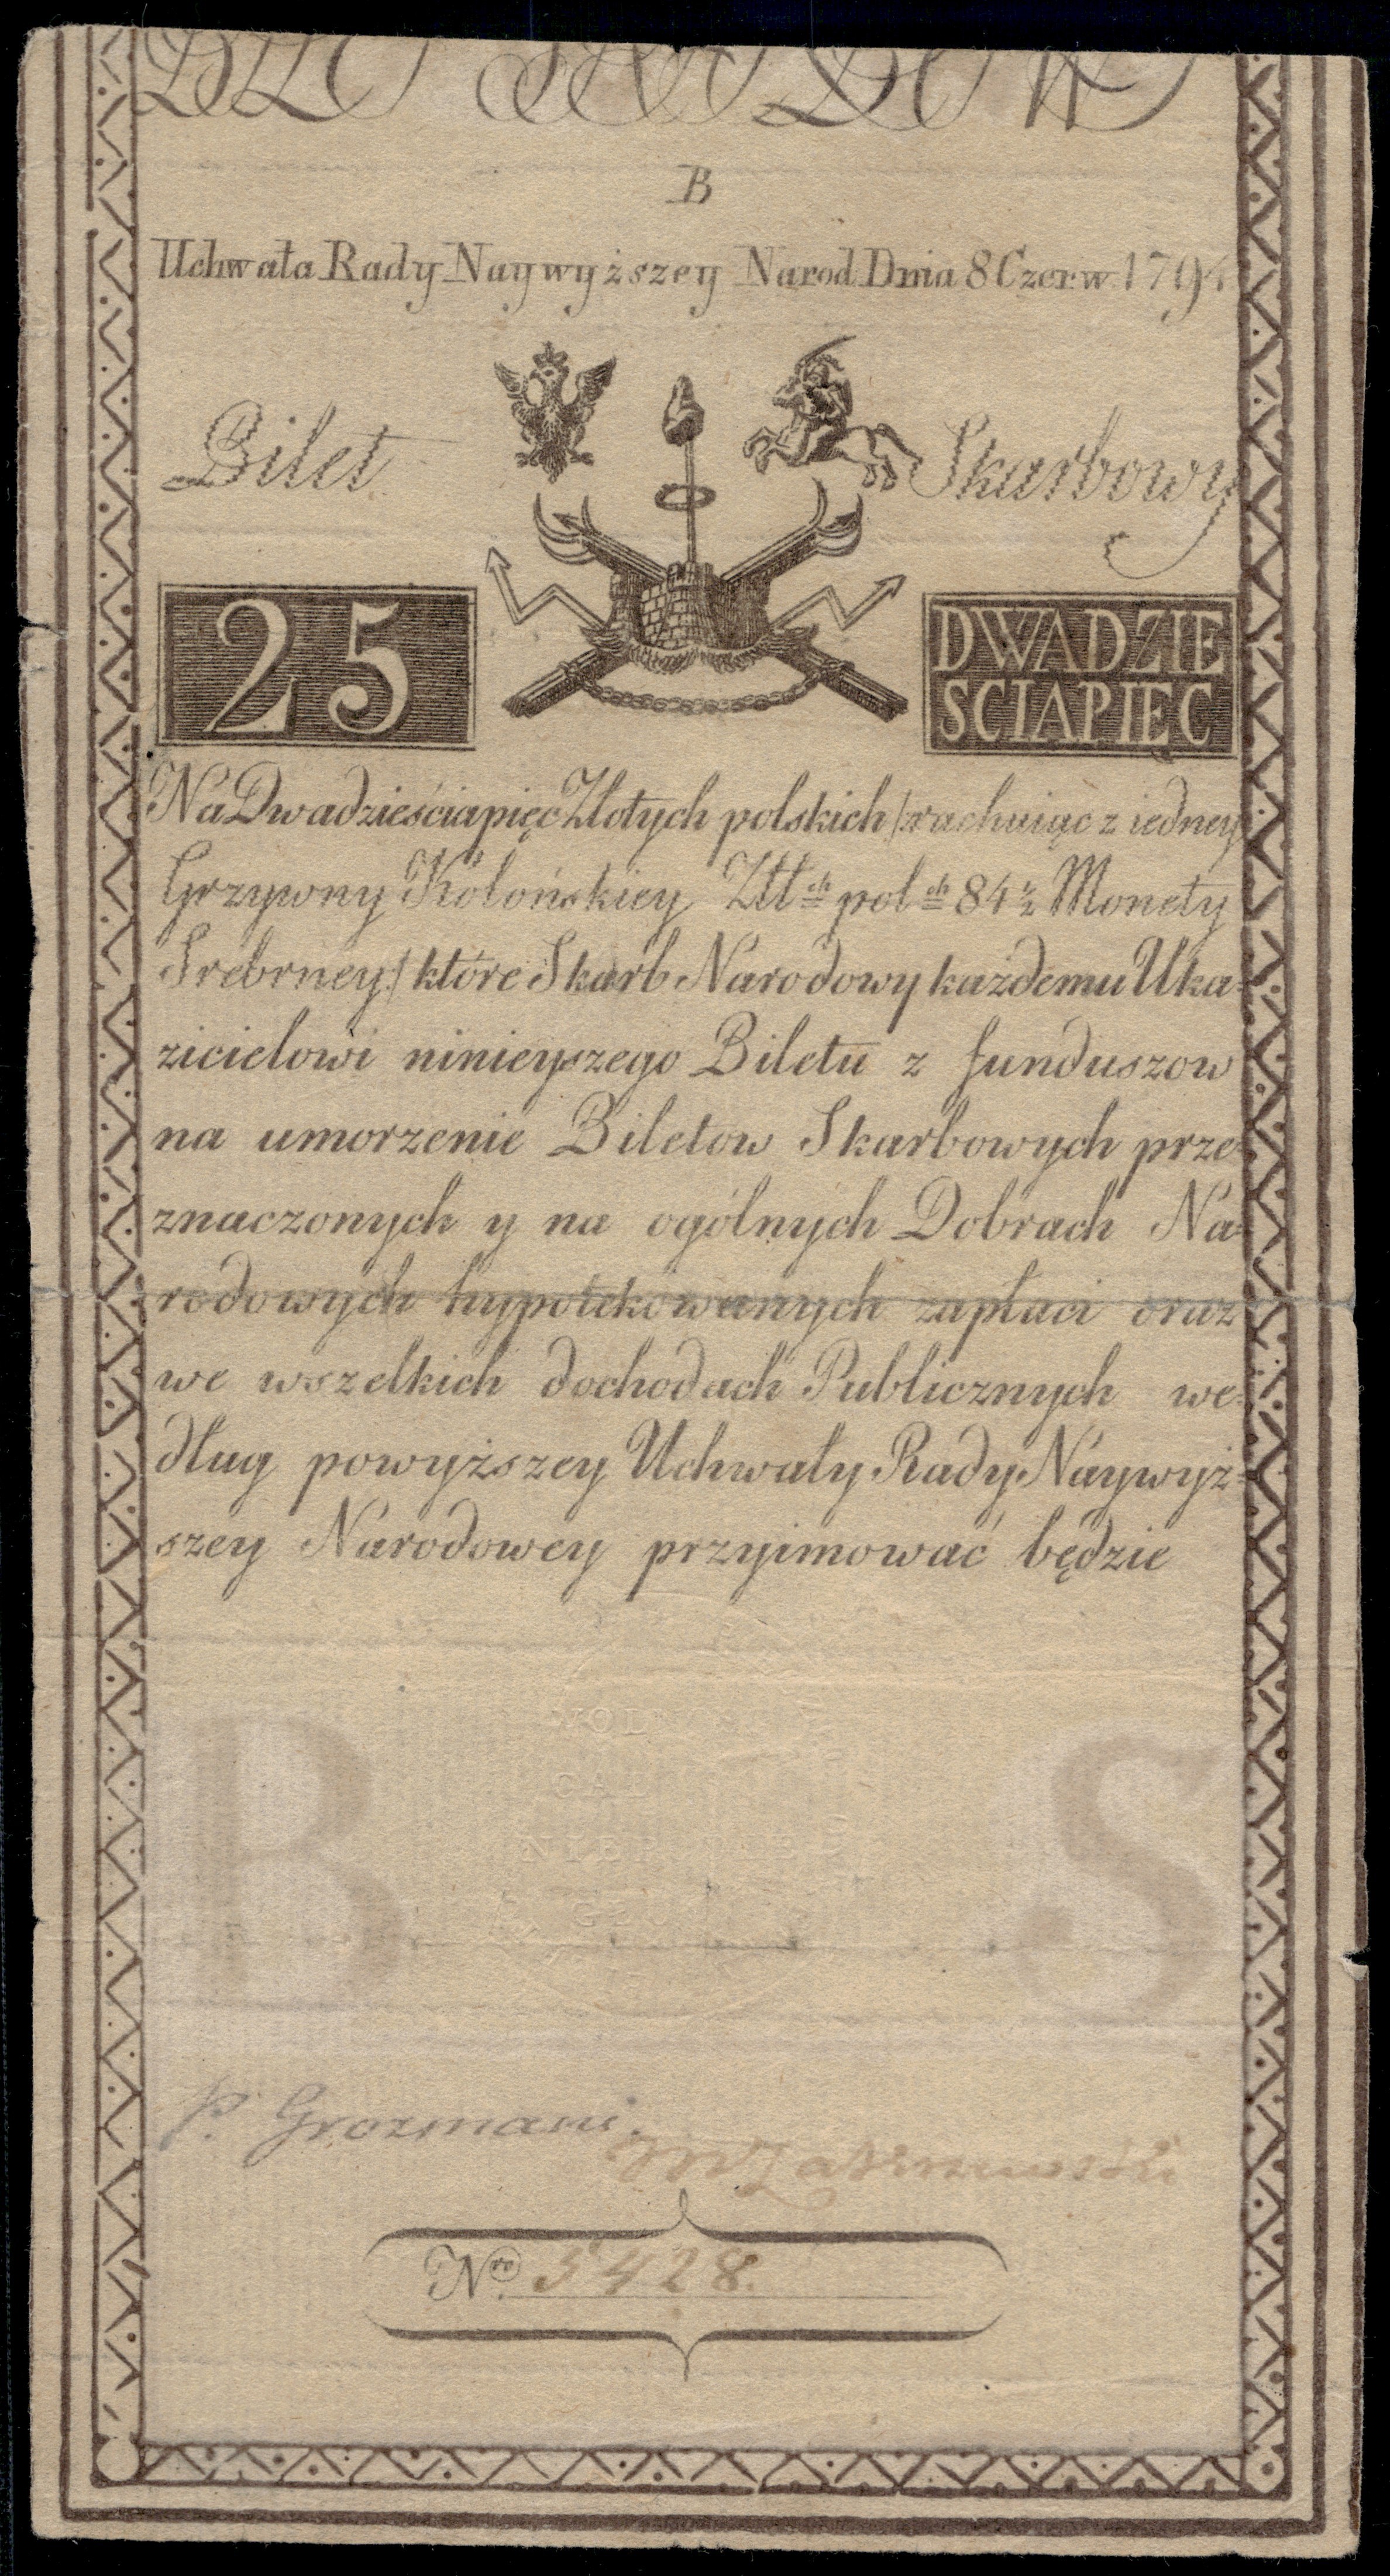 B
Uchwała Rady Naywyższey Narod Dnia 8 Czerw 1794
Bilet Skarbowy
25
DWADZIE
SCIAPIĘC
Na Dwadzieściapięć Złotych polskich /rachuiąc z iedney
Grzywny Kolońskiey Złł ch pol ch 84 1/2 Monety
Srebrney/ które Skarb Narodowy każdemu Uka=
zicielowi ninieyszego Biletu z funduszow
na umorzenie Biletow Skarbowych prze=
znaczonych y na ogólnych Dobrach Na=
rodowych hypotekowanych zapłaci oraz
we wszelkich dochodach Publicznych we=
dług powyższey Uchwały Rady Naywyż=
szey Narodowey przyimować będzie
B S
P. Grozmani.
Nro 5428.